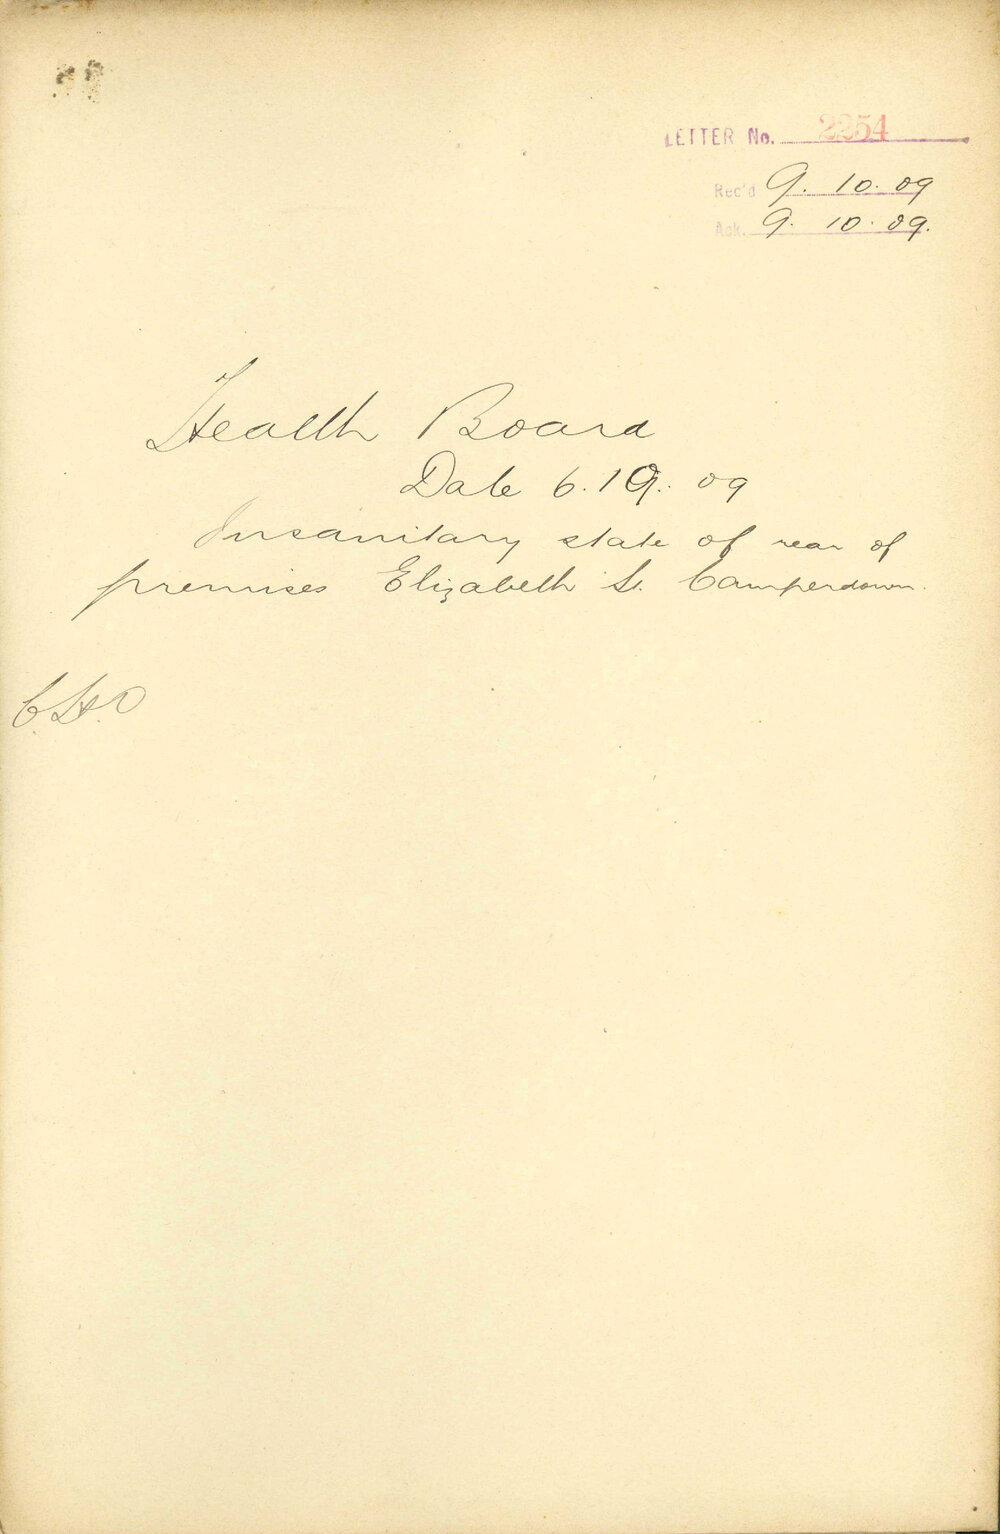 LETTER No. 2254
Rec'd 9. 10. 09
Ack. 9. 10. 09.
Health Board
Date 6. 10. 09
Insanitary state of rear of
premises Elizabeth St. Camperdown.
C.H.O